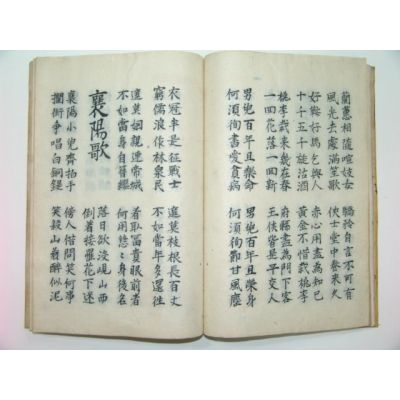 蘭蕙相隨喧妓女 驕矜自言不可有
風光去處滿笙歌 俠士堂中養來久
好鞍好馬乞與人 赤心用盡為知己
十千五千旋沽酒 黃金不惜栽桃李
桃李栽來幾在春 府縣盡為門下客
一回花落一回新 王侯皆是平交人
男兒百年且樂命 男兒百年且榮身
何須徇書受貧病 何須徇節甘風塵
衣冠半是征戰士 遮莫枝根長百丈
窮儒浪作林泉民 不如當年多還往
遮莫姻親連帝城 看取富貴眼前者
不如當身自簪纓 何用悠悠身後名
襄陽歌
落日欲沒峴山西
倒着接羅花下迷
襄陽小兒齊拍手 傍人借問笑何事
攔街爭唱白銅鍉 笑殺山翁醉似泥